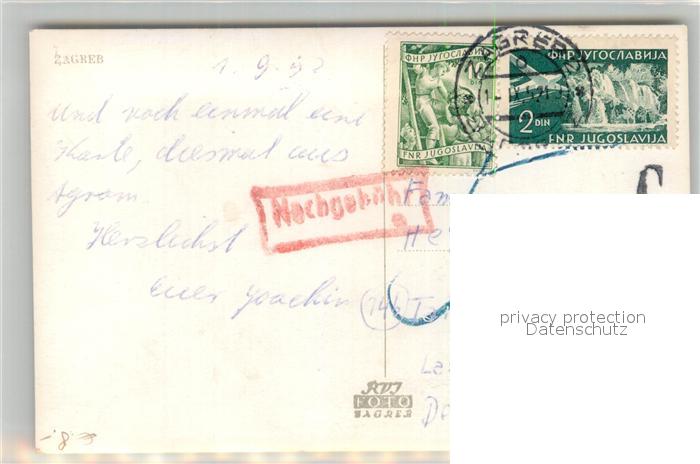 ZAGREB
1. 9. 52
Und noch einmal eine
Karte, diesmal aus
Agram.
Herzlichst
Euer Joachim
ФНР ЈУГОСЛАВИЈА
FNR JUGOSLAVIJA
ZAGREB 2
ФНР ЈУГОСЛАВИЈА
2 DIN
FNR JUGOSLAVIJA
Nachgebühr
Fam
He
14b
privacy protection
Datenschutz
FOTO
ZAGREB